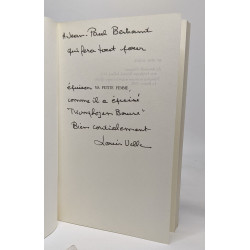 A Jean-Paul Bertrand
qui fera tout pour
épuiser MA PETITE FEMME,
comme il a épuisé
Bien cordialement
Louis Velle